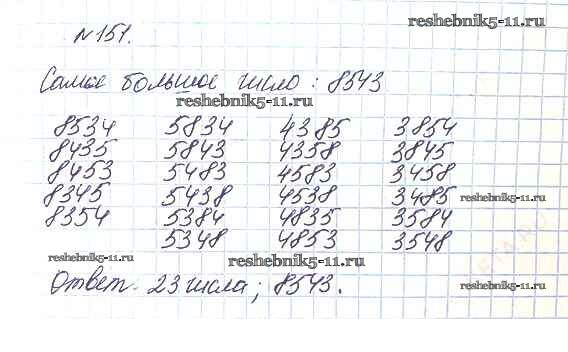 reshebnik5-11.ru
№151.
Самое большое число: 8543
reshebnik5-11.ru
8534 5834 4385 3854
8435 5843 4358 3845
8453 5483 4583 3458
8345 5438 4538 3485 reshebnik5-11.ru
8354 5384 4835 3584
5348 4853 3548
reshebnik5-11.ru reshebnik5-11.ru
Ответ. 23 числа; 8543.
reshebnik5-11.ru